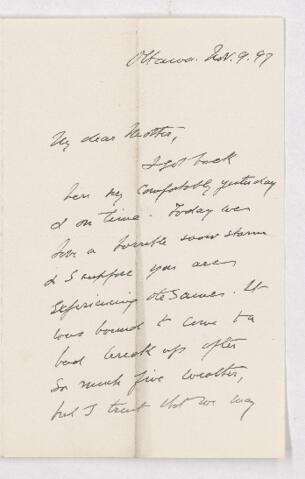 Ottawa. Nov. 9. 97
My dear Mother,
I got back
here very comfortably yesterday
& on time. Today we
have a horrible snow storm
& I suppose you are
experiencing the same. It
was bound to come to a
bad break up after
so much fine weather,
but I trust that we may